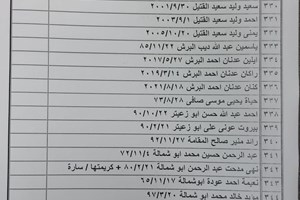 ٣٣٠ سعيد وليد سعيد القتيل ٢٠٠١/٩/٣٠
٣٣١ احمد وليد سعيد القتيل ٢٠٠٣/٩/١
٣٣٢ يمنى وليد سعيد القتيل ٢٠٠٥/١٠/٢٠
٣٣٣ ياسمين عبد الله ديب البرش ٨٥/١١/٢٢
٣٣٤ ايلين عدنان احمد البرش ٢٠١٧/٥/٢٧
٣٣٥ راكان عدنان احمد البرش ٢٠١٩/٣/١٤
٣٣٦ كنان عدنان احمد البرش ٢٠٢١/٨/١٨
٣٣٧ حياة يحيى موسى صافي ٧٣/٨/٢٨
٣٣٨ احمد عبد الله حسن ابو زعيتر ٩٠/١٠/٢٢
٣٣٩ بيروت عوني علي ابو زعيتر ٩٠/٢/٢١
٣٤٠ رائد منير صالح المقامة ٩٢/١١/٢٧
٣٤١ عبد الرحمن حسين محمد ابو شمالة ٧٢/١١/٤
٣٤٢ نهى مدحت عبد الرحمن ابو شمالة ٨٠/٢/٢١ + كريمتها / سارة
٣٤٣ نعيمة احمد عودة ابوشمالة ٦٥/١١/١٧
٣٤٤ مؤيد خالد محمد ابو شمالة ٩٧/٣/٢٠